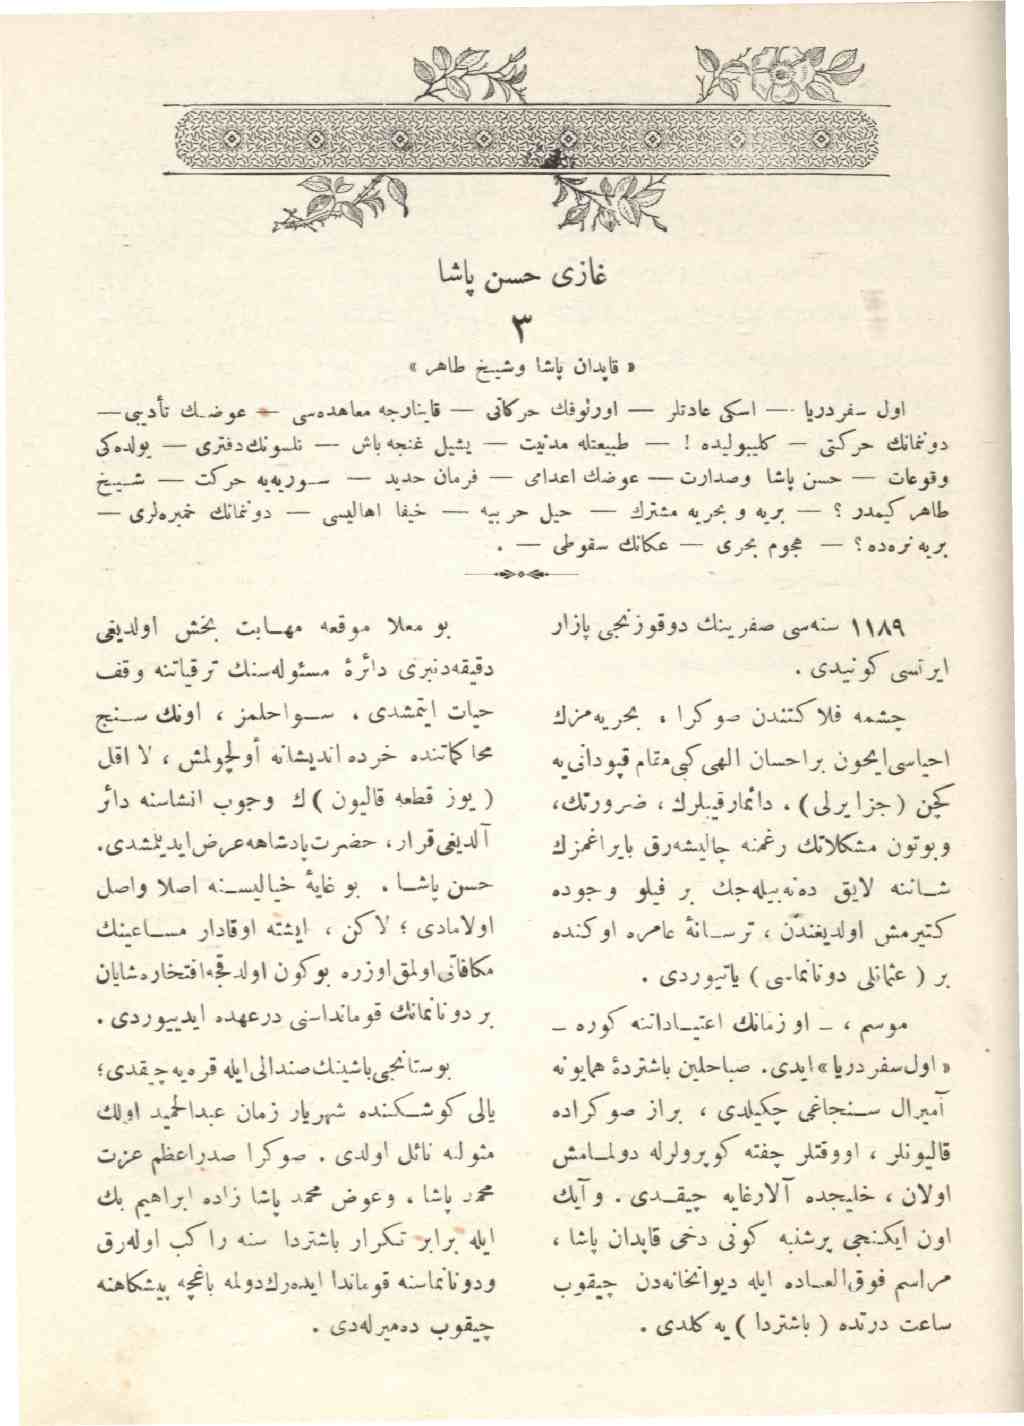 غازی حسن پاشا
٣
« قاپدان پاشا وشیخ طاهر »
اول سفر دریا — اسکی عادتلر — اورلوفك حرکاتی — قاینارجه معاهده‌سی — عوضك تأدیبی —
دونمانك حرکتی — کلیبولیده ! — طبیعتله مدنیت — یشیل غنجه باش — نلسونك دفتری — یولده‌کی
وقوعات — حسن پاشا وصدارت — عوضك اعدامی — فرمان حدید — سوریه‌یه حرکت — شیخ
طاهر کیمدر ؟ — بریه و بحریه مشترك — حیل حربیه — حیفا اهالیسی — دونمانك خمبره‌لری —
بریه نره‌ده ؟ — هجوم بحری — عکانك سقوطی — .
١١٨٩ سنه‌سی صفرینك دوقوزنجی پازار
ایرتسی کونیدی .
چشمه فلاکتندن صوکرا ، بحریه‌مزك
احیاسی ایچون بر احسان الهی کبی مقام قپودانی‌یه
کچن ( جزایرلی ) ، دائما رقیبلرك ، ضرورتك ،
وبوتون مشکلاتك رغمنه چالیشه‌رق بایراغمزك
شاننه لایق ده‌نه‌بیله‌جك بر فیلو وجوده
کتیرمش اولدیغندن ، ترسانهٔ عامره اوکنده
بر ( عثمانلی دونانماسی ) یاتیوردی .
موسم ، ـ او زمانك اعتیاداتنه کوره ـ
« اول سفر دریا » ایدی . صباحلین باشتردهٔ همایونه
آمیرال سنجاغی چکیلدی ، براز صوکراده
قالیونلر ، اووقتلر چفته کوپرولرله دولمامش
اولان ، خلیجده آلارغایه چیقدی . وآیك
اون ایکنجی پرشنبه کونی دخی قاپدان پاشا ،
مراسم فوق‌العاده ایله دیوانخانه‌دن چیقوب
ساعت درتده ( باشتردا ) یه کلدی .
بو معلا موقعه مهابت بخش اولدیغی
دقیقه‌دنبری دائرهٔ مسئوله‌سنك ترقیاتنه وقف
حیات ایتمشدی . سواحلمز ، اونك سنج
محاکماتنده خرده اندیشانه أولچولمش ، لا اقل
( یوز قطعه قالیون ) ك وجوب انشاسنه دائر
آلدیغی قرار ، حضرت پادشاهه عرض ایدیلمشدی .
حسن پاشا . بو غایهٔ خیالیسنه اصلا واصل
اولامادی ؛ لاکن ، ایشته اوقادار مساعینك
مکافاتی اولمق اوزره بوکون اولدقجه افتخاره شایان
بر دونانمانك قومانداسنی درعهده ایدییوردی .
بوستانجی باشینك صندالی ایله قره‌یه چیقدی ؛
یالی کوشکنده شهریار زمان عبدالحمید اولك
مثولنه نائل اولدی . صوکرا صدراعظم عزت
محمد پاشا ، وعوض محمد پاشا زاده ابراهیم بك
ایله برابر تکرار باشتردا سنه راکب اوله‌رق
ودونانماسنه قوماندا ایده‌رك دولمه باغچه پیشکاهنه
چیقوب ده‌میرله‌دی .